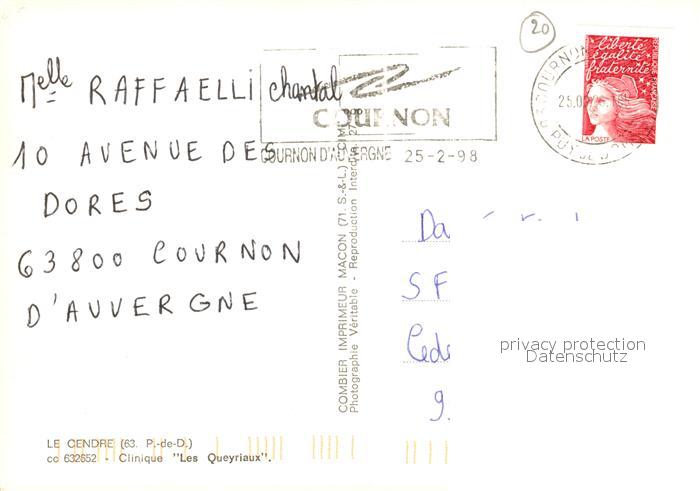 20
Melle RAFFAELLI chantal
10 AVENUE DES
DORES
63800 COURNON
D'AUVERGNE
COURNON
COURNON D'AUVERGNE 25-2-98
liberté
égalité
fraternité
LA POSTE
COMBIER IMPRIMEUR MACON (71. S.-&-L.)
Photographie Véritable - Reproduction
Da
SF
Ced
9.
privacy protection
Datenschutz
LE CENDRE (63. P.-de-D.)
cc 632652 - Clinique "Les Queyriaux".